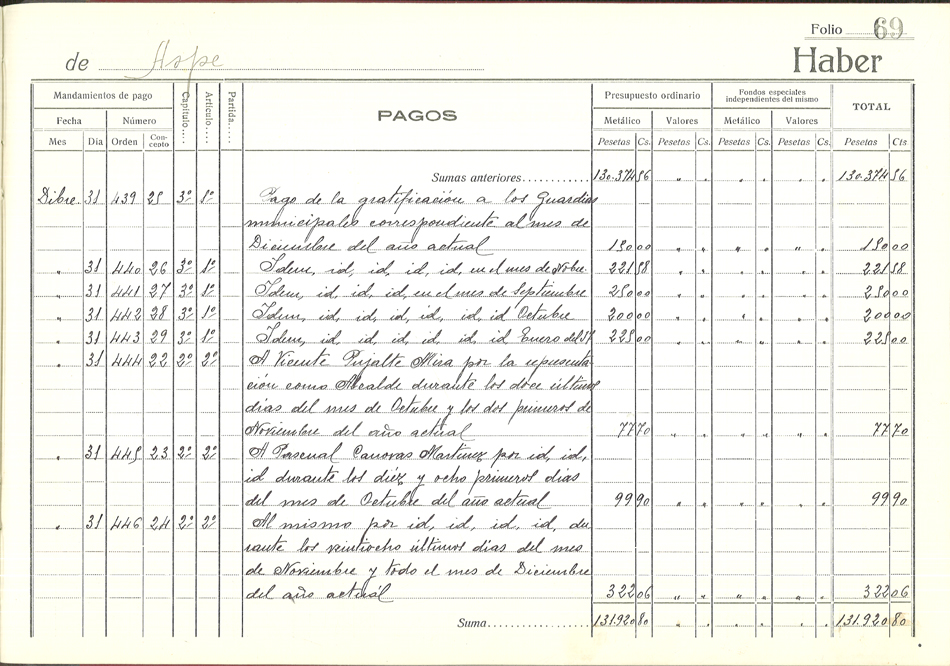 Folio 69
de Aspe Haber
Mandamientos de pago Capítulo.... Artículo.... Partida.... PAGOS Presupuesto ordinario Fondos especiales independientes del mismo TOTAL
Fecha Número Metálico Valores Metálico Valores
Mes Día Orden Concepto Pesetas Cs. Pesetas Cs. Pesetas Cs. Pesetas Cs. Pesetas Cts
Sumas anteriores............ 130.374 56 " " " " " " 130.374 56
Dibre. 31 439 25 3º 1º Pago de la gratificación a los Guardias
municipales correspondiente al mes de
Diciembre del año actual 150 00 " " " " " " 150 00
" 31 440 26 3º 1º Idem, id, id, id, id, en el mes de Nobre 221 58 " " " " " " 221 58
" 31 441 27 3º 1º Idem, id, id, id, en el mes de Septiembre 250 00 " " " " " " 250 00
" 31 442 28 3º 1º Idem, id, id, id, id, id Octubre 200 00 " " " " " " 200 00
" 31 443 29 3º 1º Idem, id, id, id, id, id, id Enero del 37 225 00 " " " " " " 225 00
" 31 444 22 2º 2º A Vicente Pujalte Mira por la representa-
ción como Alcalde durante los doce últimos
días del mes de Octubre y los dos primeros de
Noviembre del año actual 77 70 " " " " " " 77 70
" 31 445 23 2º 2º A Pascual Canovas Martínez por id, id,
id durante los diéz y ocho primeros días
del mes de Octubre del año actual 99 90 " " " " " " 99 90
" 31 446 24 2º 2º Al mismo por id, id, id, id, du-
rante los veintiocho últimos días del mes
de Noviembre y todo el mes de Diciembre
del año actual 322 06 " " " " " " 322 06
Suma................. 131.920 80 " " " " " " 131.920 80